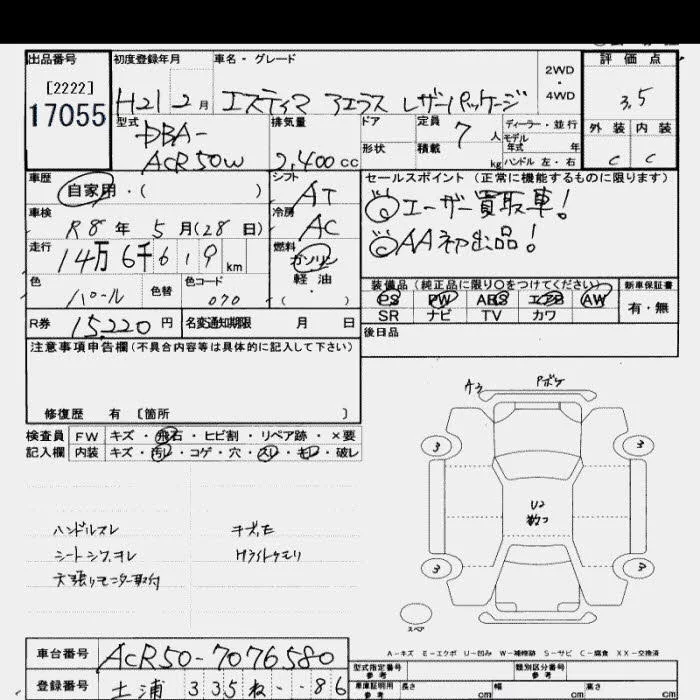 出品番号 初度登録年月 車名・グレード 2WD・4WD 評価点
[2222]
17055
H21 2月 エスティマ アエラス レザーパッケージ
3.5
型式 DBA-ACR50W
排気量 2,400cc
ドア 形状
定員 7人
積載 kg
ディーラー・並行
モデル年式 年
ハンドル 左・右
外装 内装
C C
車歴 自家用・( )
シフト AT
セールスポイント (正常に機能するものに限ります)
ユーザー買取車!
AA初出品!
車検 R8年 5月(28日)
冷房 AC
走行 14万6千619km
燃料 ガソリン 軽油 ( )
色 パール 色替 色コード 070
装備品(純正品に限り〇をつけてください) 新車保証書
PS PW ABS エアB AW 有・無
SR ナビ TV カワ
R券 15,220円 名変通知期限 月 日
後日品
注意事項申告欄(不具合内容等は具体的に記入して下さい)
修復歴 有 〔箇所 〕
検査員 FW キズ・飛石・ヒビ割・リペア跡・×要
記入欄 内装 キズ・汚レ・コゲ・穴・スレ・キレ・破レ
A3
3 3
U2
3 3
ハンドルスレ
天張りモニター取付
スペア
A-キズ E-エクボ U-凹み W-補修跡 S-サビ C-腐食 XX-交換済
車台番号 ACR50-7076580
型式指定番号 参考 類別区分番号 参考
登録番号 土浦 335 ね ・・86
車庫証明用 参考 長さ cm 幅 cm 高さ cm